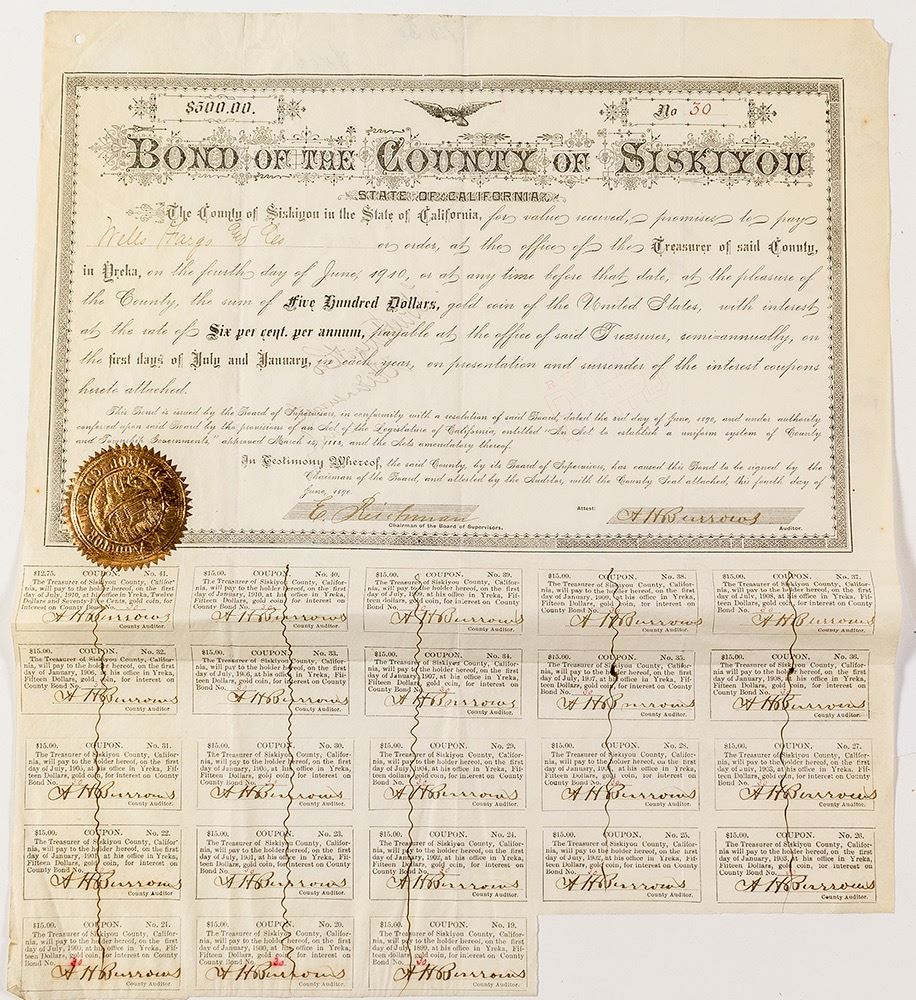 $500.00.
No 30
BOND OF THE COUNTY OF SISKIYOU
STATE OF CALIFORNIA.
The County of Siskiyou in the State of California, for value received, promises to pay
Wells Fargo or order, at the office of the Treasurer of said County,
in Yreka, on the fourth day of June, 1910, or at any time before that date, at the pleasure of
the County, the sum of Five Hundred Dollars, gold coin of the United States, with interest
at the rate of Six per cent. per annum, payable at the office of said Treasurer, semi-annually, on
the first days of July and January, in each year, on presentation and surrender of the interest coupons
hereto attached.
This Bond is issued by the Board of Supervisors, in conformity with a resolution of said Board, dated the 3rd day of June, 1890, and under authority
conferred upon said Board by the provisions of an Act of the Legislature of California, entitled "An Act to establish a uniform system of County
and Township Governments," approved March 14, 1883, and the Acts amendatory thereof.
In Testimony Whereof, the said County, by its Board of Supervisors, has caused this Bond to be signed by the
Chairman of the Board, and attested by the Auditor, with the County Seal attached, this fourth day of
June, 1890.
Chairman of the Board of Supervisors.
Attest: A H Burrows
Auditor.
$12.75. COUPON. No. 41.
The Treasurer of Siskiyou County, Califor-
nia, will pay to the holder hereof, on the first
day of July, 1910, at his office in Yreka, Twelve
Dollars and Seventy-Five Cents, gold coin, for
interest on County Bond No.
A H Burrows
County Auditor.
$15.00. COUPON. No. 40.
The Treasurer of Siskiyou County, Califor-
nia, will pay to the holder hereof, on the first
day of January, 1910, at his office in Yreka,
Fifteen Dollars, gold coin, for interest on
County Bond No.
A H Burrows
County Auditor.
$15.00. COUPON. No. 39.
The Treasurer of Siskiyou County, Califor-
nia, will pay to the holder hereof, on the first
day of July, 1909, at his office in Yreka, Fif-
teen dollars, gold coin, for interest on County
Bond No.
A H Burrows
County Auditor.
$15.00. COUPON. No. 38.
The Treasurer of Siskiyou County, Califor-
nia, will pay to the holder hereof, on the first
day of January, 1909, at his office in Yreka,
Fifteen Dollars, gold coin, for interest on
County Bond No.
A H Burrows
County Auditor.
$15.00. COUPON. No. 37.
The Treasurer of Siskiyou County, Califor-
nia, will pay to the holder hereof, on the first
day of July, 1908, at his office in Yreka, Fif-
teen Dollars, gold coin, for interest on County
Bond No.
A H Burrows
County Auditor.
$15.00. COUPON. No. 32.
The Treasurer of Siskiyou County, Califor-
nia, will pay to the holder hereof, on the first
day of January, 1906, at his office in Yreka,
Fifteen Dollars, gold coin, for interest on
County Bond No.
A H Burrows
County Auditor.
$15.00. COUPON. No. 33.
The Treasurer of Siskiyou County, Califor-
nia, will pay to the holder hereof, on the first
day of July, 1906, at his office in Yreka, Fif-
teen Dollars, gold coin, for interest on County
Bond No.
A H Burrows
County Auditor.
$15.00. COUPON. No. 34.
The Treasurer of Siskiyou County, Califor-
nia, will pay to the holder hereof, on the first
day of January, 1907, at his office in Yreka,
Fifteen Dollars, gold coin, for interest on
County Bond No.
A H Burrows
County Auditor.
$15.00. COUPON. No. 35.
The Treasurer of Siskiyou County, Califor-
nia, will pay to the holder hereof, on the first
day of July, 1907, at his office in Yreka, Fif-
teen Dollars, gold coin, for interest on County
Bond No.
A H Burrows
County Auditor.
$15.00. COUPON. No. 36.
The Treasurer of Siskiyou County, Califor-
nia, will pay to the holder hereof, on the first
day of January, 1908, at his office in Yreka,
Fifteen Dollars, gold coin, for interest on
County Bond No.
A H Burrows
County Auditor.
$15.00. COUPON. No. 31.
The Treasurer of Siskiyou County, Califor-
nia, will pay to the holder hereof, on the first
day of July, 1905, at his office in Yreka, Fif-
teen Dollars, gold coin, for interest on County
Bond No.
A H Burrows
County Auditor.
$15.00. COUPON. No. 30.
The Treasurer of Siskiyou County, Califor-
nia, will pay to the holder hereof, on the first
day of January, 1905, at his office in Yreka,
Fifteen Dollars, gold coin, for interest on
County Bond No.
A H Burrows
County Auditor.
$15.00. COUPON. No. 29.
The Treasurer of Siskiyou County, Califor-
nia, will pay to the holder hereof, on the first
day of July, 1904, at his office in Yreka, Fif-
teen dollars, gold coin, for interest on County
Bond No.
A H Burrows
County Auditor.
$15.00. COUPON. No. 28.
The Treasurer of Siskiyou County, Califor-
nia, will pay to the holder hereof, on the first
day of January, 1904, at his office in Yreka,
Fifteen Dollars, gold coin, for interest on
County Bond No.
A H Burrows
County Auditor.
$15.00. COUPON. No. 27.
The Treasurer of Siskiyou County, Califor-
nia, will pay to the holder hereof, on the first
day of July, 1903, at his office in Yreka, Fif-
teen Dollars, gold coin, for interest on County
Bond No.
A H Burrows
County Auditor.
$15.00. COUPON. No. 22.
The Treasurer of Siskiyou County, Califor-
nia, will pay to the holder hereof, on the first
day of January, 1901, at his office in Yreka,
Fifteen Dollars, gold coin, for interest on
County Bond No.
A H Burrows
County Auditor.
$15.00. COUPON. No. 23.
The Treasurer of Siskiyou County, Califor-
nia, will pay to the holder hereof, on the first
day of July, 1901, at his office in Yreka, Fif-
teen Dollars, gold coin, for interest on County
Bond No.
A H Burrows
County Auditor.
$15.00. COUPON. No. 24.
The Treasurer of Siskiyou County, Califor-
nia, will pay to the holder hereof, on the first
day of January, 1902, at his office in Yreka,
Fifteen Dollars, gold coin, for interest on
County Bond No.
A H Burrows
County Auditor.
$15.00. COUPON. No. 25.
The Treasurer of Siskiyou County, Califor-
nia, will pay to the holder hereof, on the first
day of July, 1902, at his office in Yreka, Fif-
teen Dollars, gold coin, for interest on County
Bond No.
A H Burrows
County Auditor.
$15.00. COUPON. No. 26.
The Treasurer of Siskiyou County, Califor-
nia, will pay to the holder hereof, on the first
day of January, 1903, at his office in Yreka,
Fifteen Dollars, gold coin, for interest on
County Bond No.
A H Burrows
County Auditor.
$15.00. COUPON. No. 21.
The Treasurer of Siskiyou County, Califor-
nia, will pay to the holder hereof, on the first
day of July, 1900, at his office in Yreka, Fif-
teen Dollars, gold coin, for interest on County
Bond No. 30
A H Burrows
County Auditor.
$15.00. COUPON. No. 20.
The Treasurer of Siskiyou County, Califor-
nia, will pay to the holder hereof, on the first
day of January, 1900, at his office in Yreka,
Fifteen Dollars, gold coin, for interest on
County Bond No. 30
A H Burrows
County Auditor.
$15.00. COUPON. No. 19.
The Treasurer of Siskiyou County, Califor-
nia, will pay to the holder hereof, on the first
day of July, 1899, at his office in Yreka, Fif-
teen dollars, gold coin, for interest on County
Bond No. 30
A H Burrows
County Auditor.